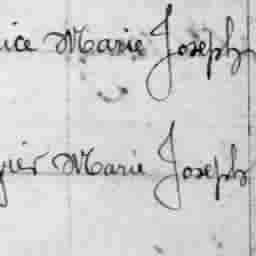 ice Marie Joseph
gier Marie Joseph